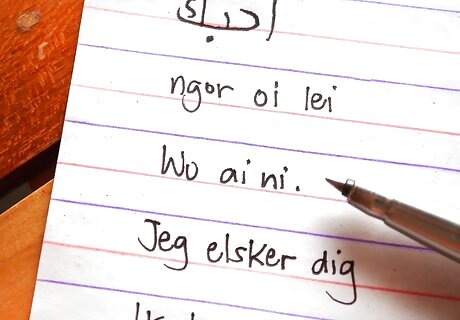 احبك
ngor oi lei
Wo ai ni.
Jeg elsker dig